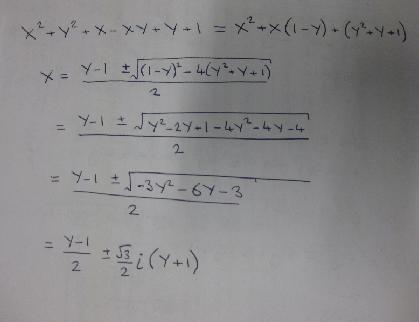 X² + Y² + X - XY + Y + 1 = X² + X(1-Y) + (Y²+Y+1)
X = (Y-1 ± √((1-Y)² - 4(Y²+Y+1))) / 2
= (Y-1 ± √(Y²-2Y+1-4Y²-4Y-4)) / 2
= (Y-1 ± √(-3Y²-6Y-3)) / 2
= (Y-1)/2 ± (√3/2) i (Y+1)